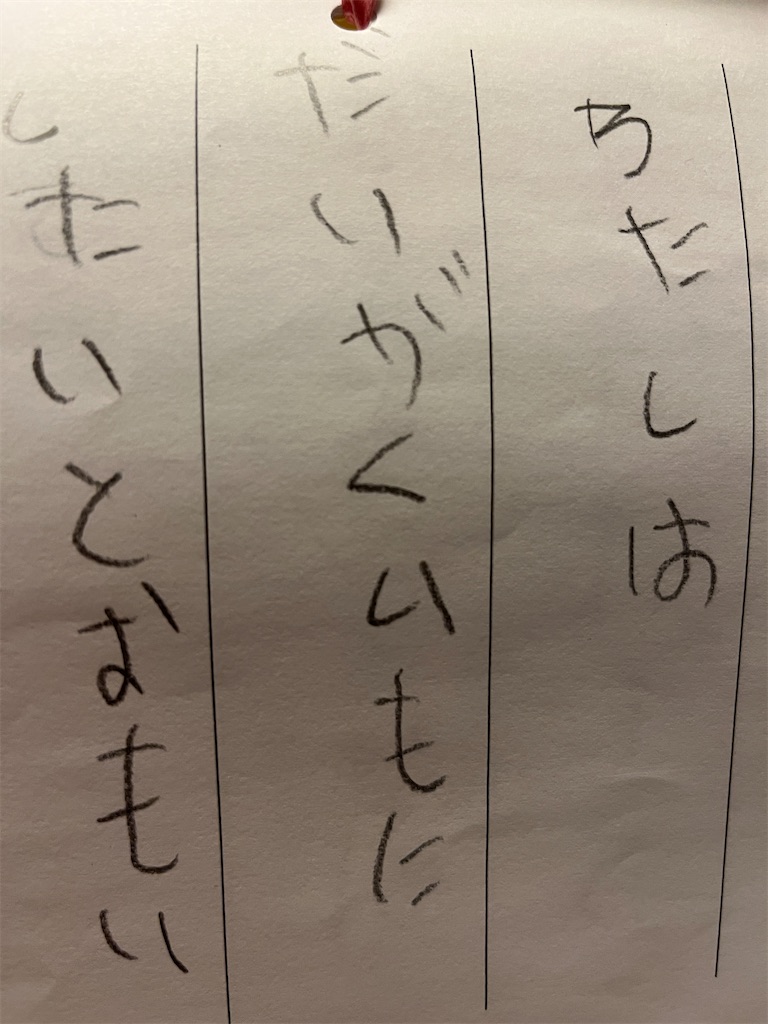 わたしは
だいがくいもに
したいとおもい